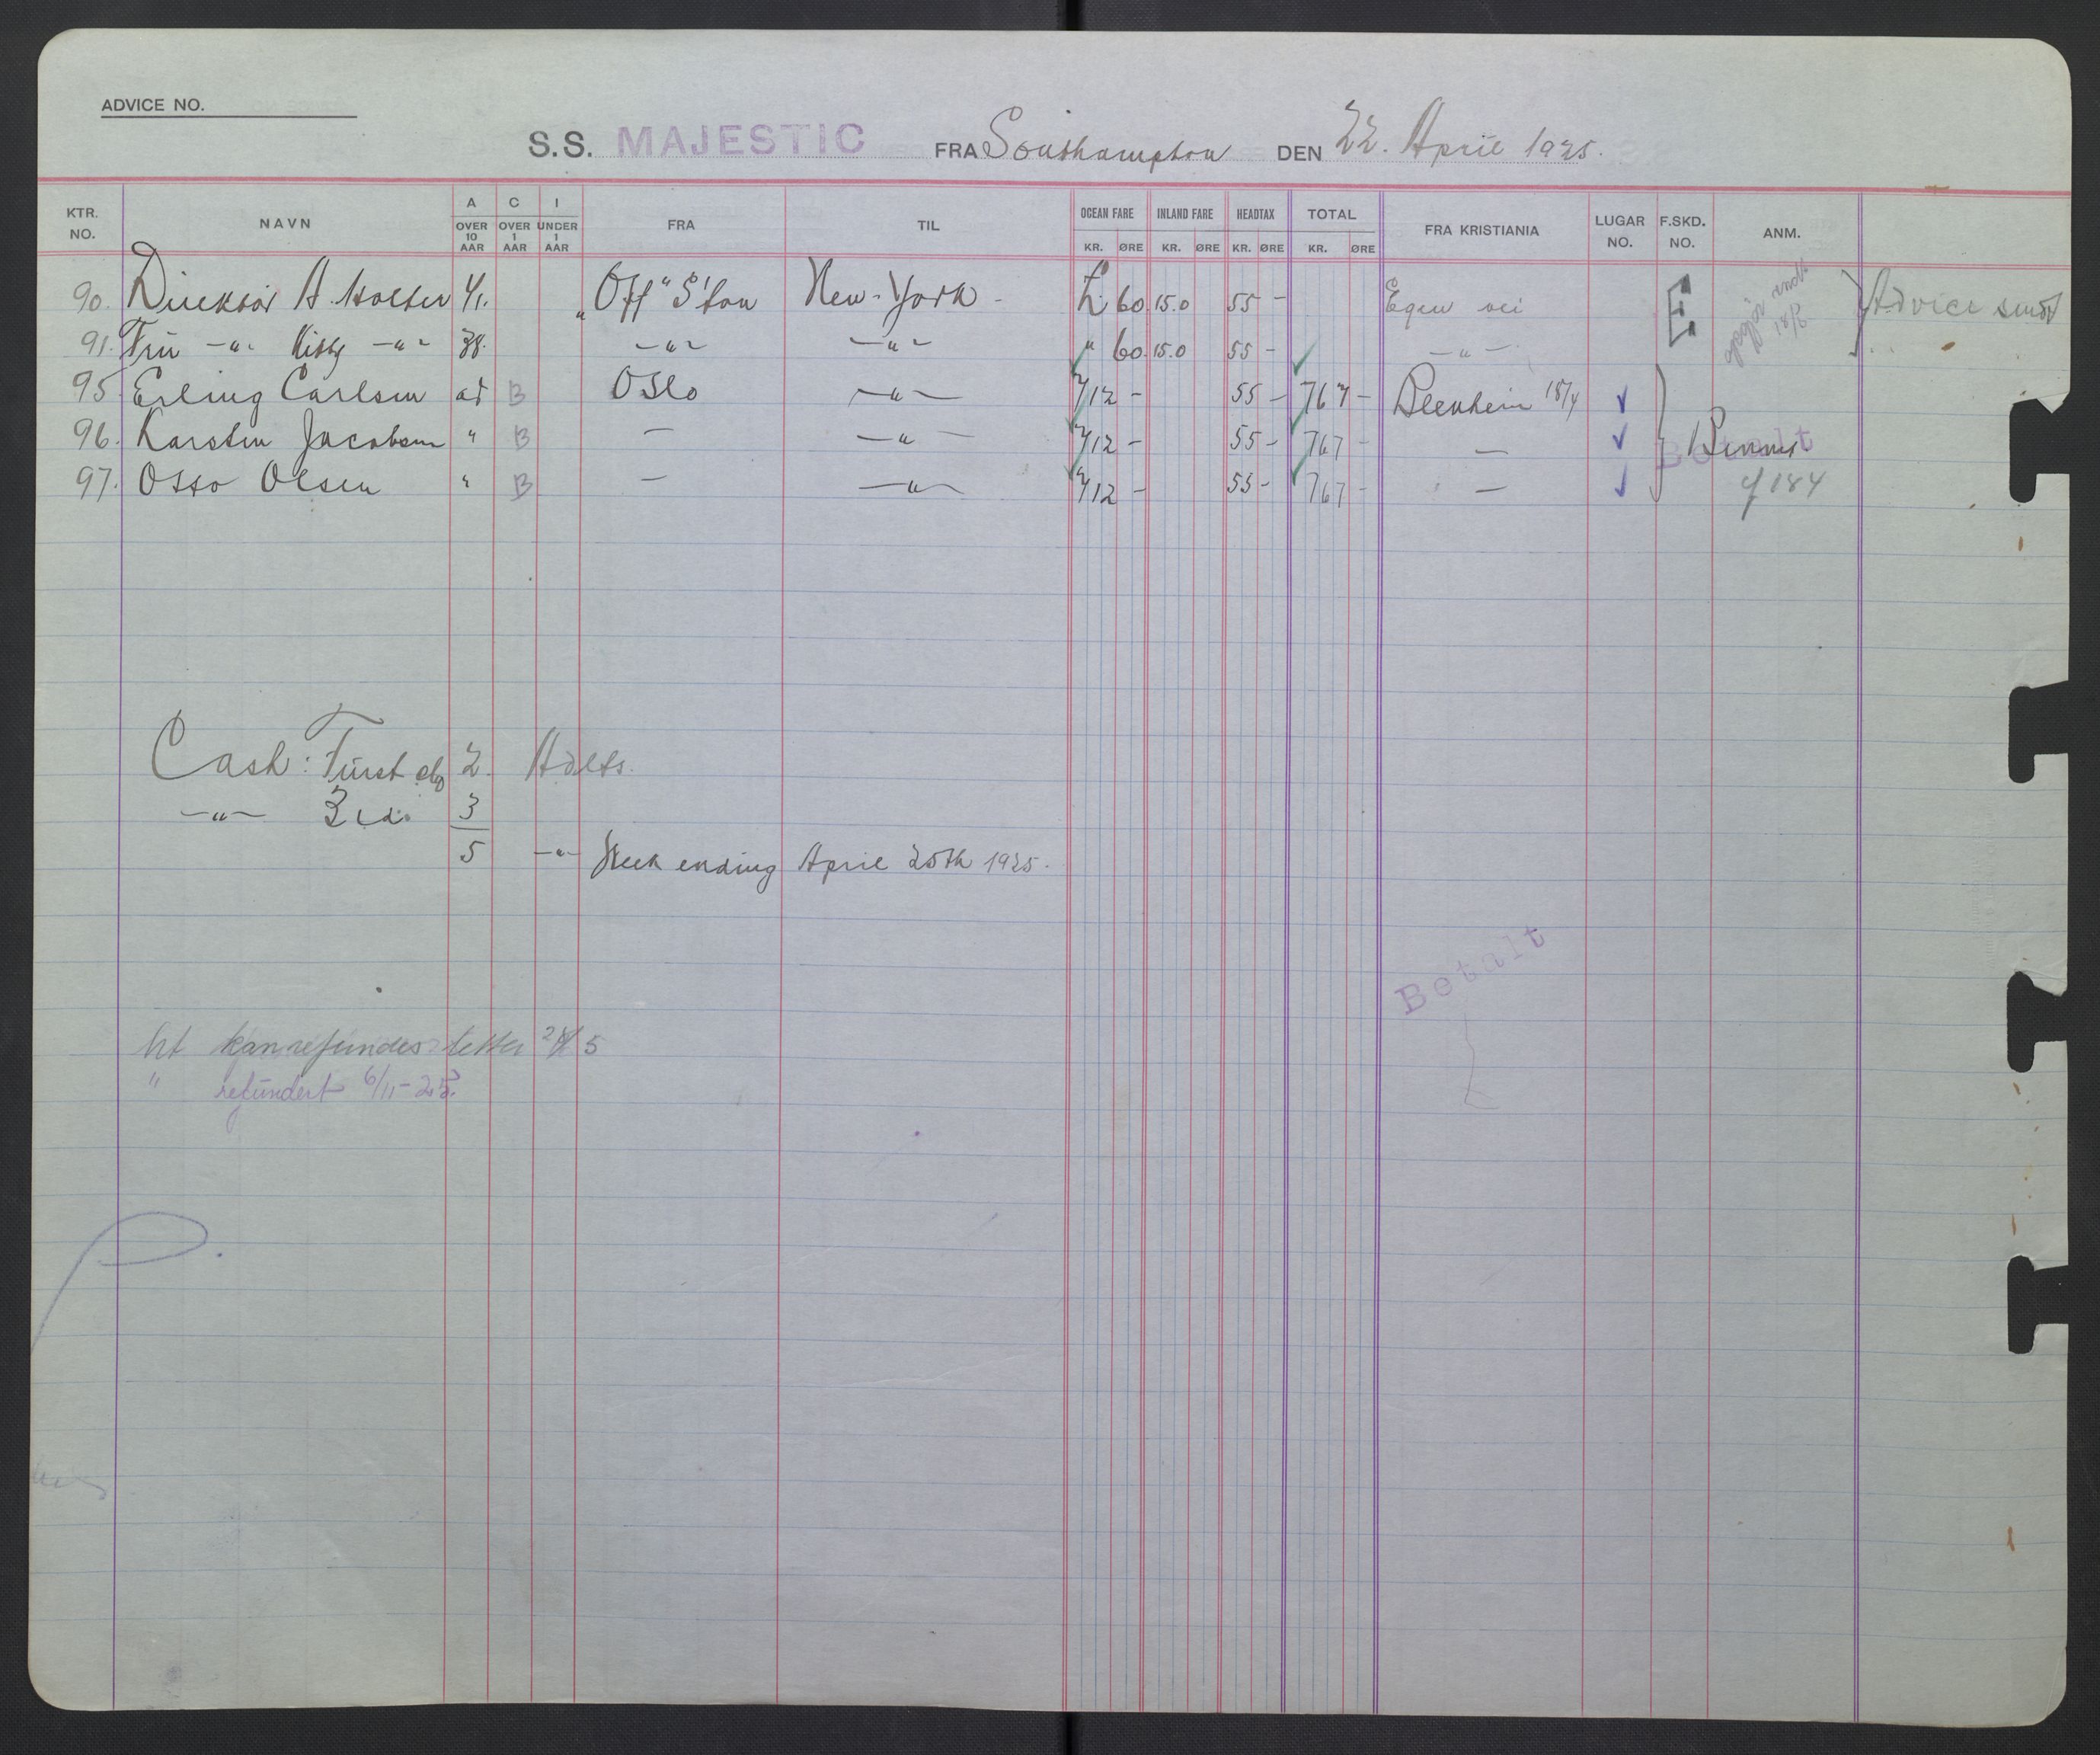 ADVICE NO.
S.S. MAJESTIC FRA Southampton DEN 22. April 1925.
KTR. NO. NAVN A OVER 10 AAR C OVER 1 AAR I UNDER 1 AAR FRA TIL OCEAN FARE KR. ØRE INLAND FARE KR. ØRE HEADTAX KR. ØRE TOTAL KR. ØRE FRA KRISTIANIA LUGAR NO. F.SKD. NO. ANM.
90. Direktør A. Holter 41. "Off" S'ton New-York - £ 60. 15.0 55 - Egen vei E Advice sendt
91. Fru -"- -"- 38. -"- -"- " 60. 15.0 55 - -"-
95. Erling Carlsen ad B Oslo -"- 712 - 55 - 767 - Blenheim 18/4
96. Karsten Jacobsen " B - -"- 712 - 55 - 767 - - Betalt
97. Otto Olsen " B - -"- 712 - 55 - 767 - - 184
Cash: First 2. Adlts.
-"- 3rd. 3
5 -"- Week ending April 25th 1925.
Betalt
kan refunderes
" refundert 6/11-25.